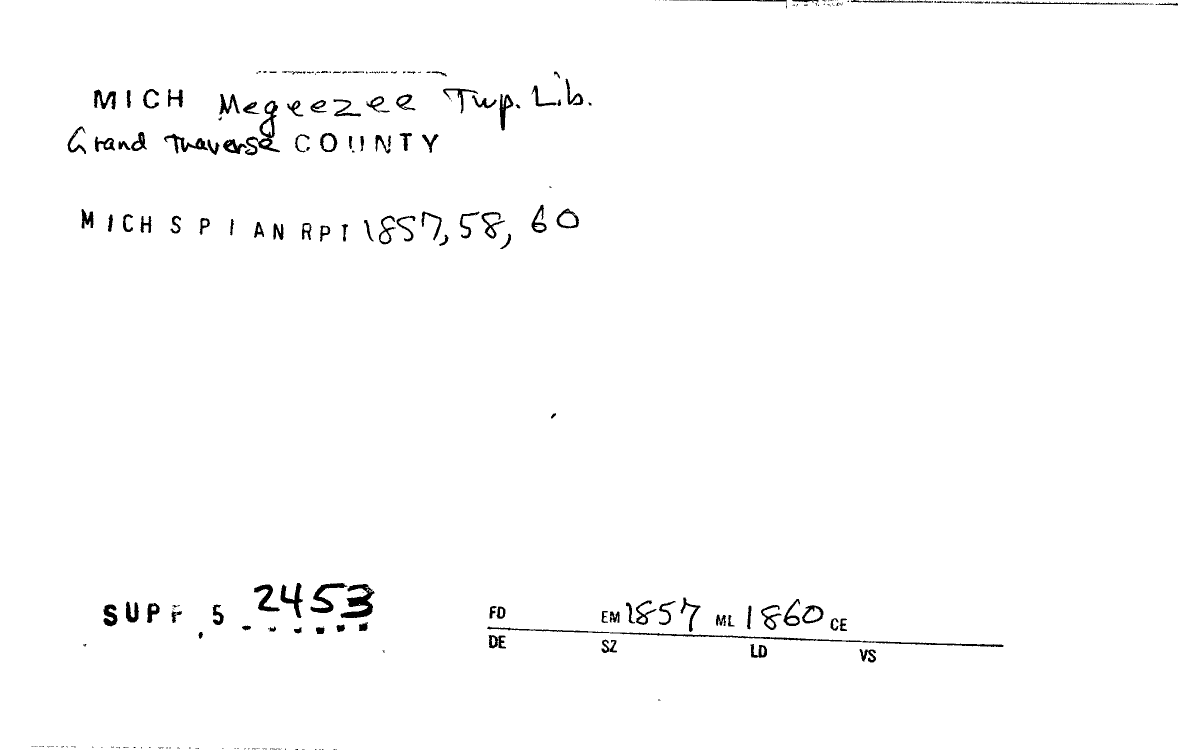 MICH Megeezee Twp. Lib.
Grand Traverse COUNTY
MICH S P I AN RPT 1857, 58, 60
SUPP. 5 2453
FD EM 1857 ML 1860 CE
DE SZ LD VS